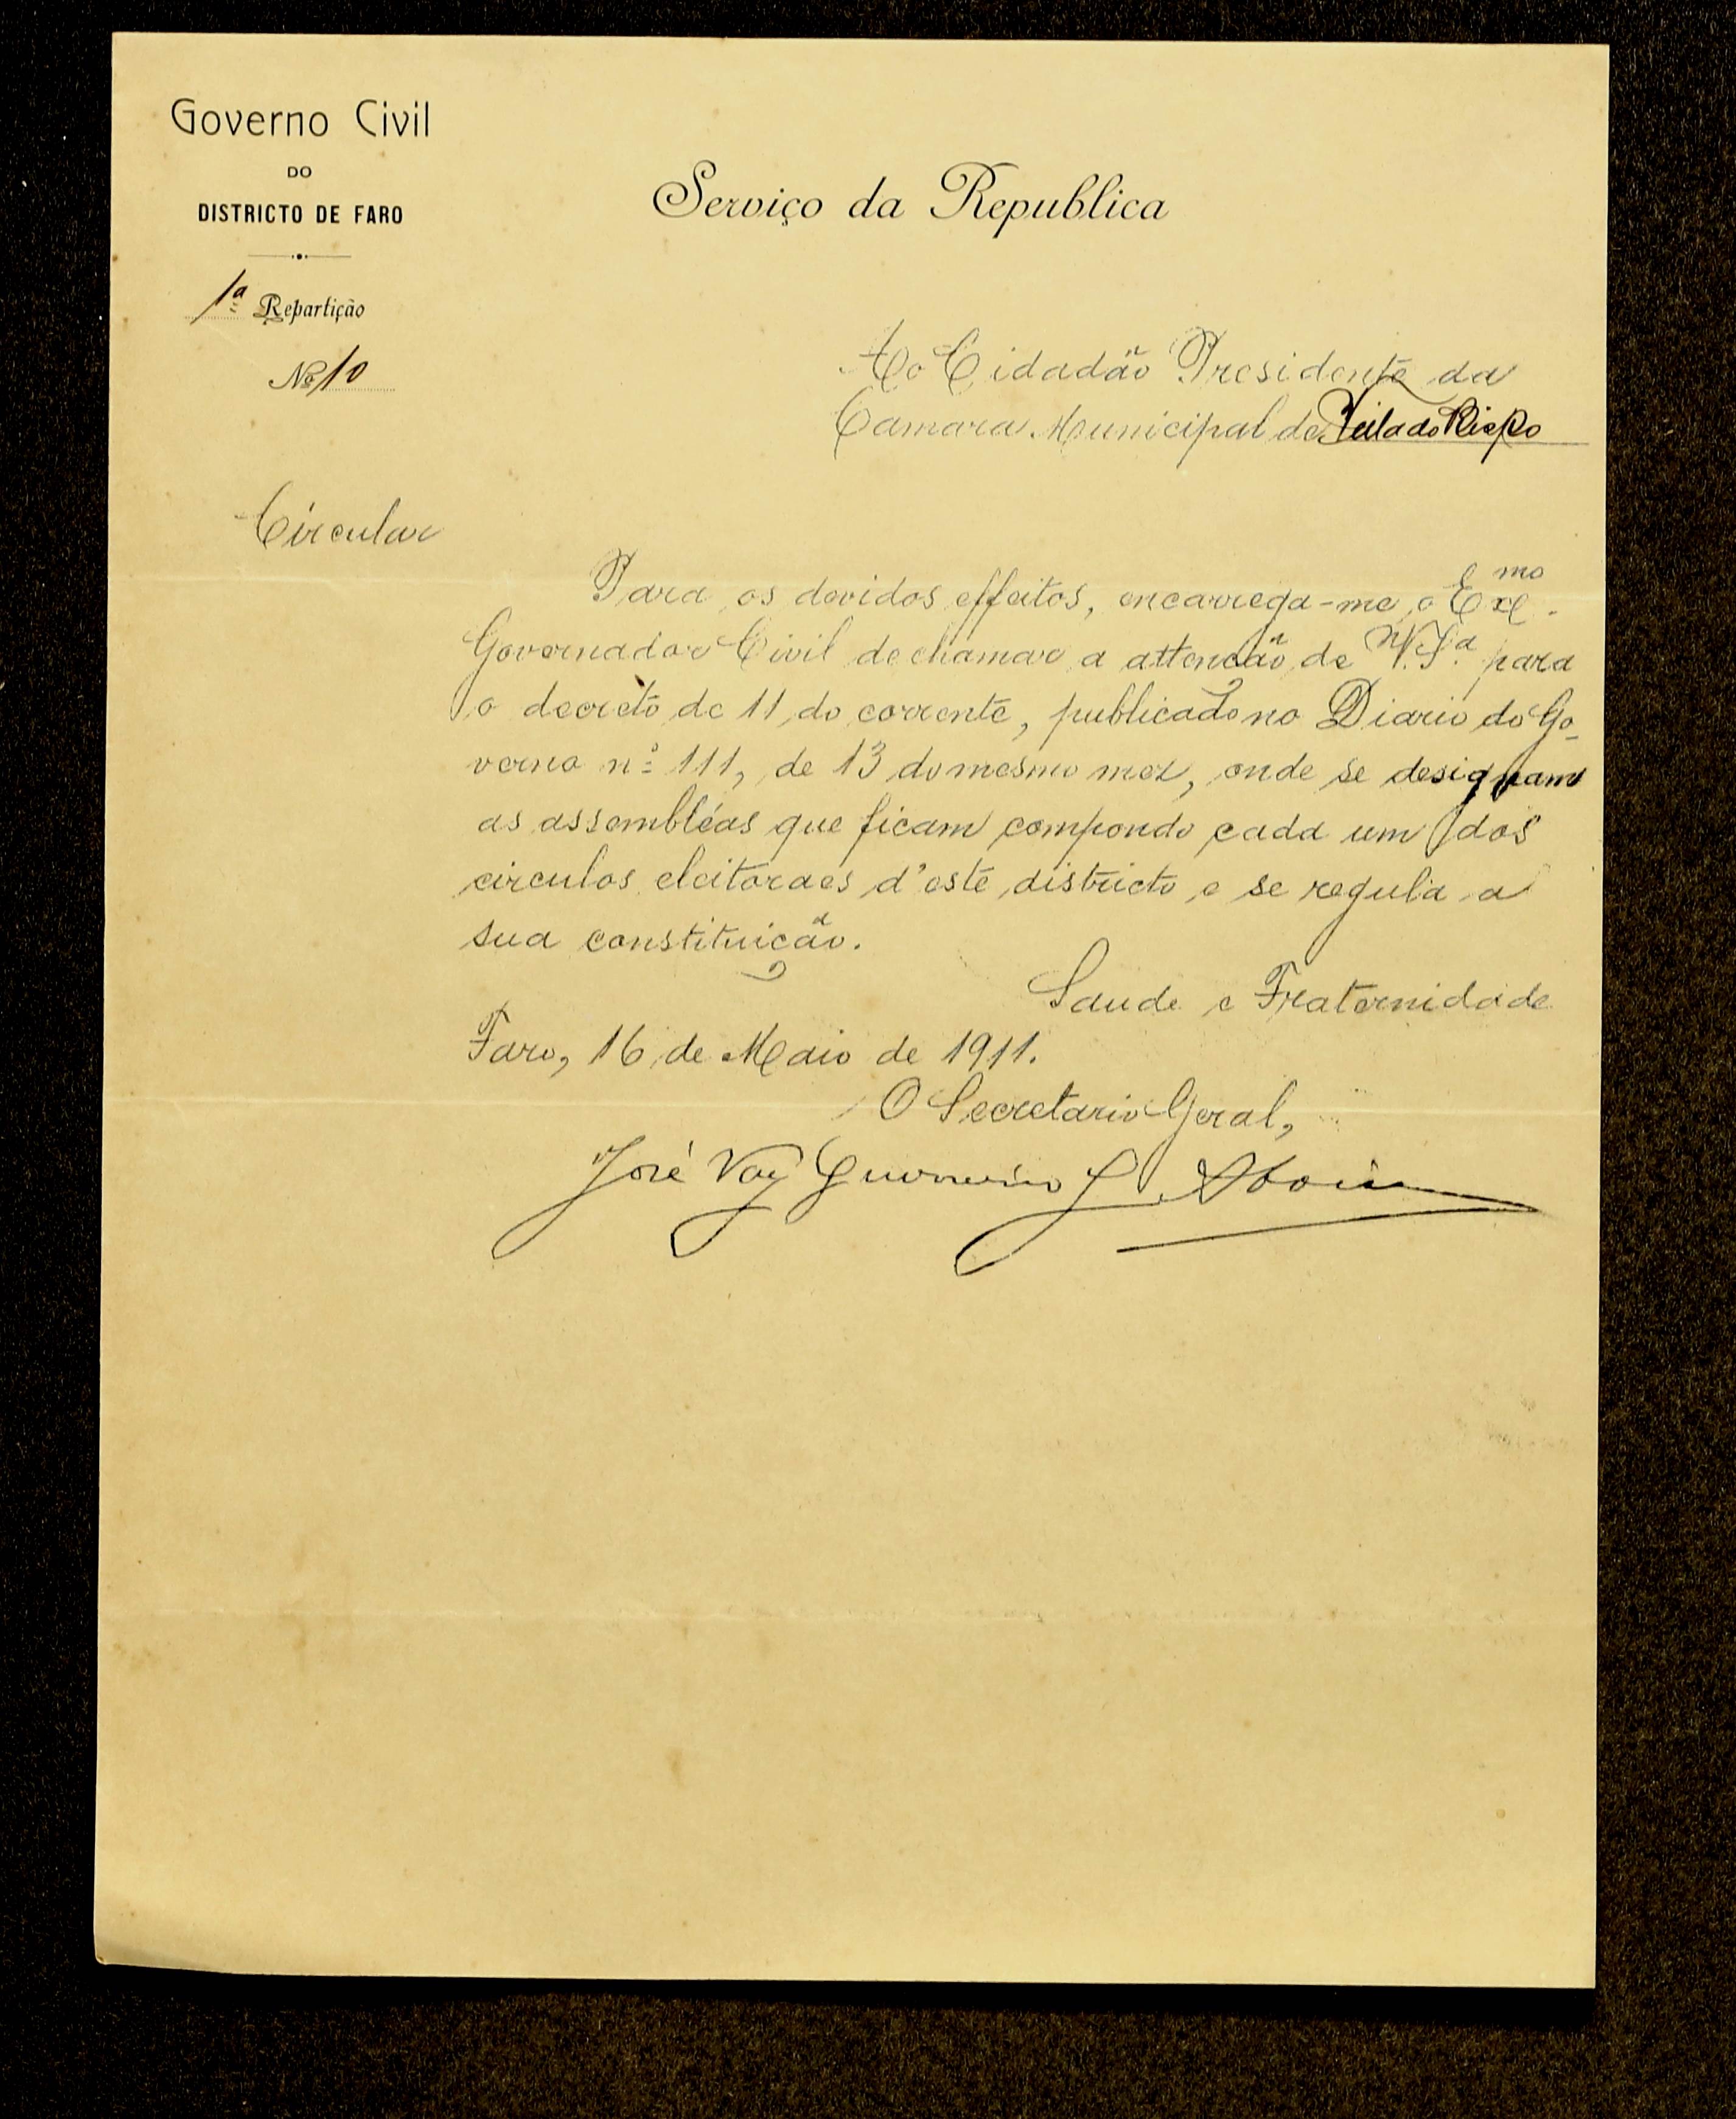 Governo Civil
DO
DISTRICTO DE FARO
Serviço da Republica
1ª Repartição
Nº 10
Ao Cidadão Presidente da
Camara Municipal de Villa do Bispo
Circular
Para os devidos effeitos, encarrega-me o Exmo.
Governador Civil de chamar a attenção de V. Sª. para
o decreto de 11 do corrente, publicado no Diario do Go-
verno nº 111, de 13 do mesmo mez, onde se designam
as assembléas que ficam compondo cada um dos
circulos eleitoraes d'este districto e se regula a
sua constituição.
Saude e Fraternidade
Faro, 16 de Maio de 1911.
O Secretario Geral,
José Vaz Guerreiro J. Aboim